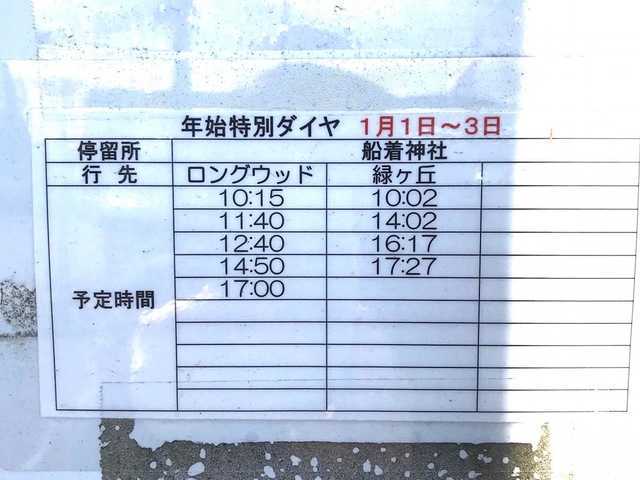 年始特別ダイヤ 1月1日～3日
停留所 船着神社
行 先 ロングウッド 緑ヶ丘
予定時間
10:15 10:02
11:40 14:02
12:40 16:17
14:50 17:27
17:00